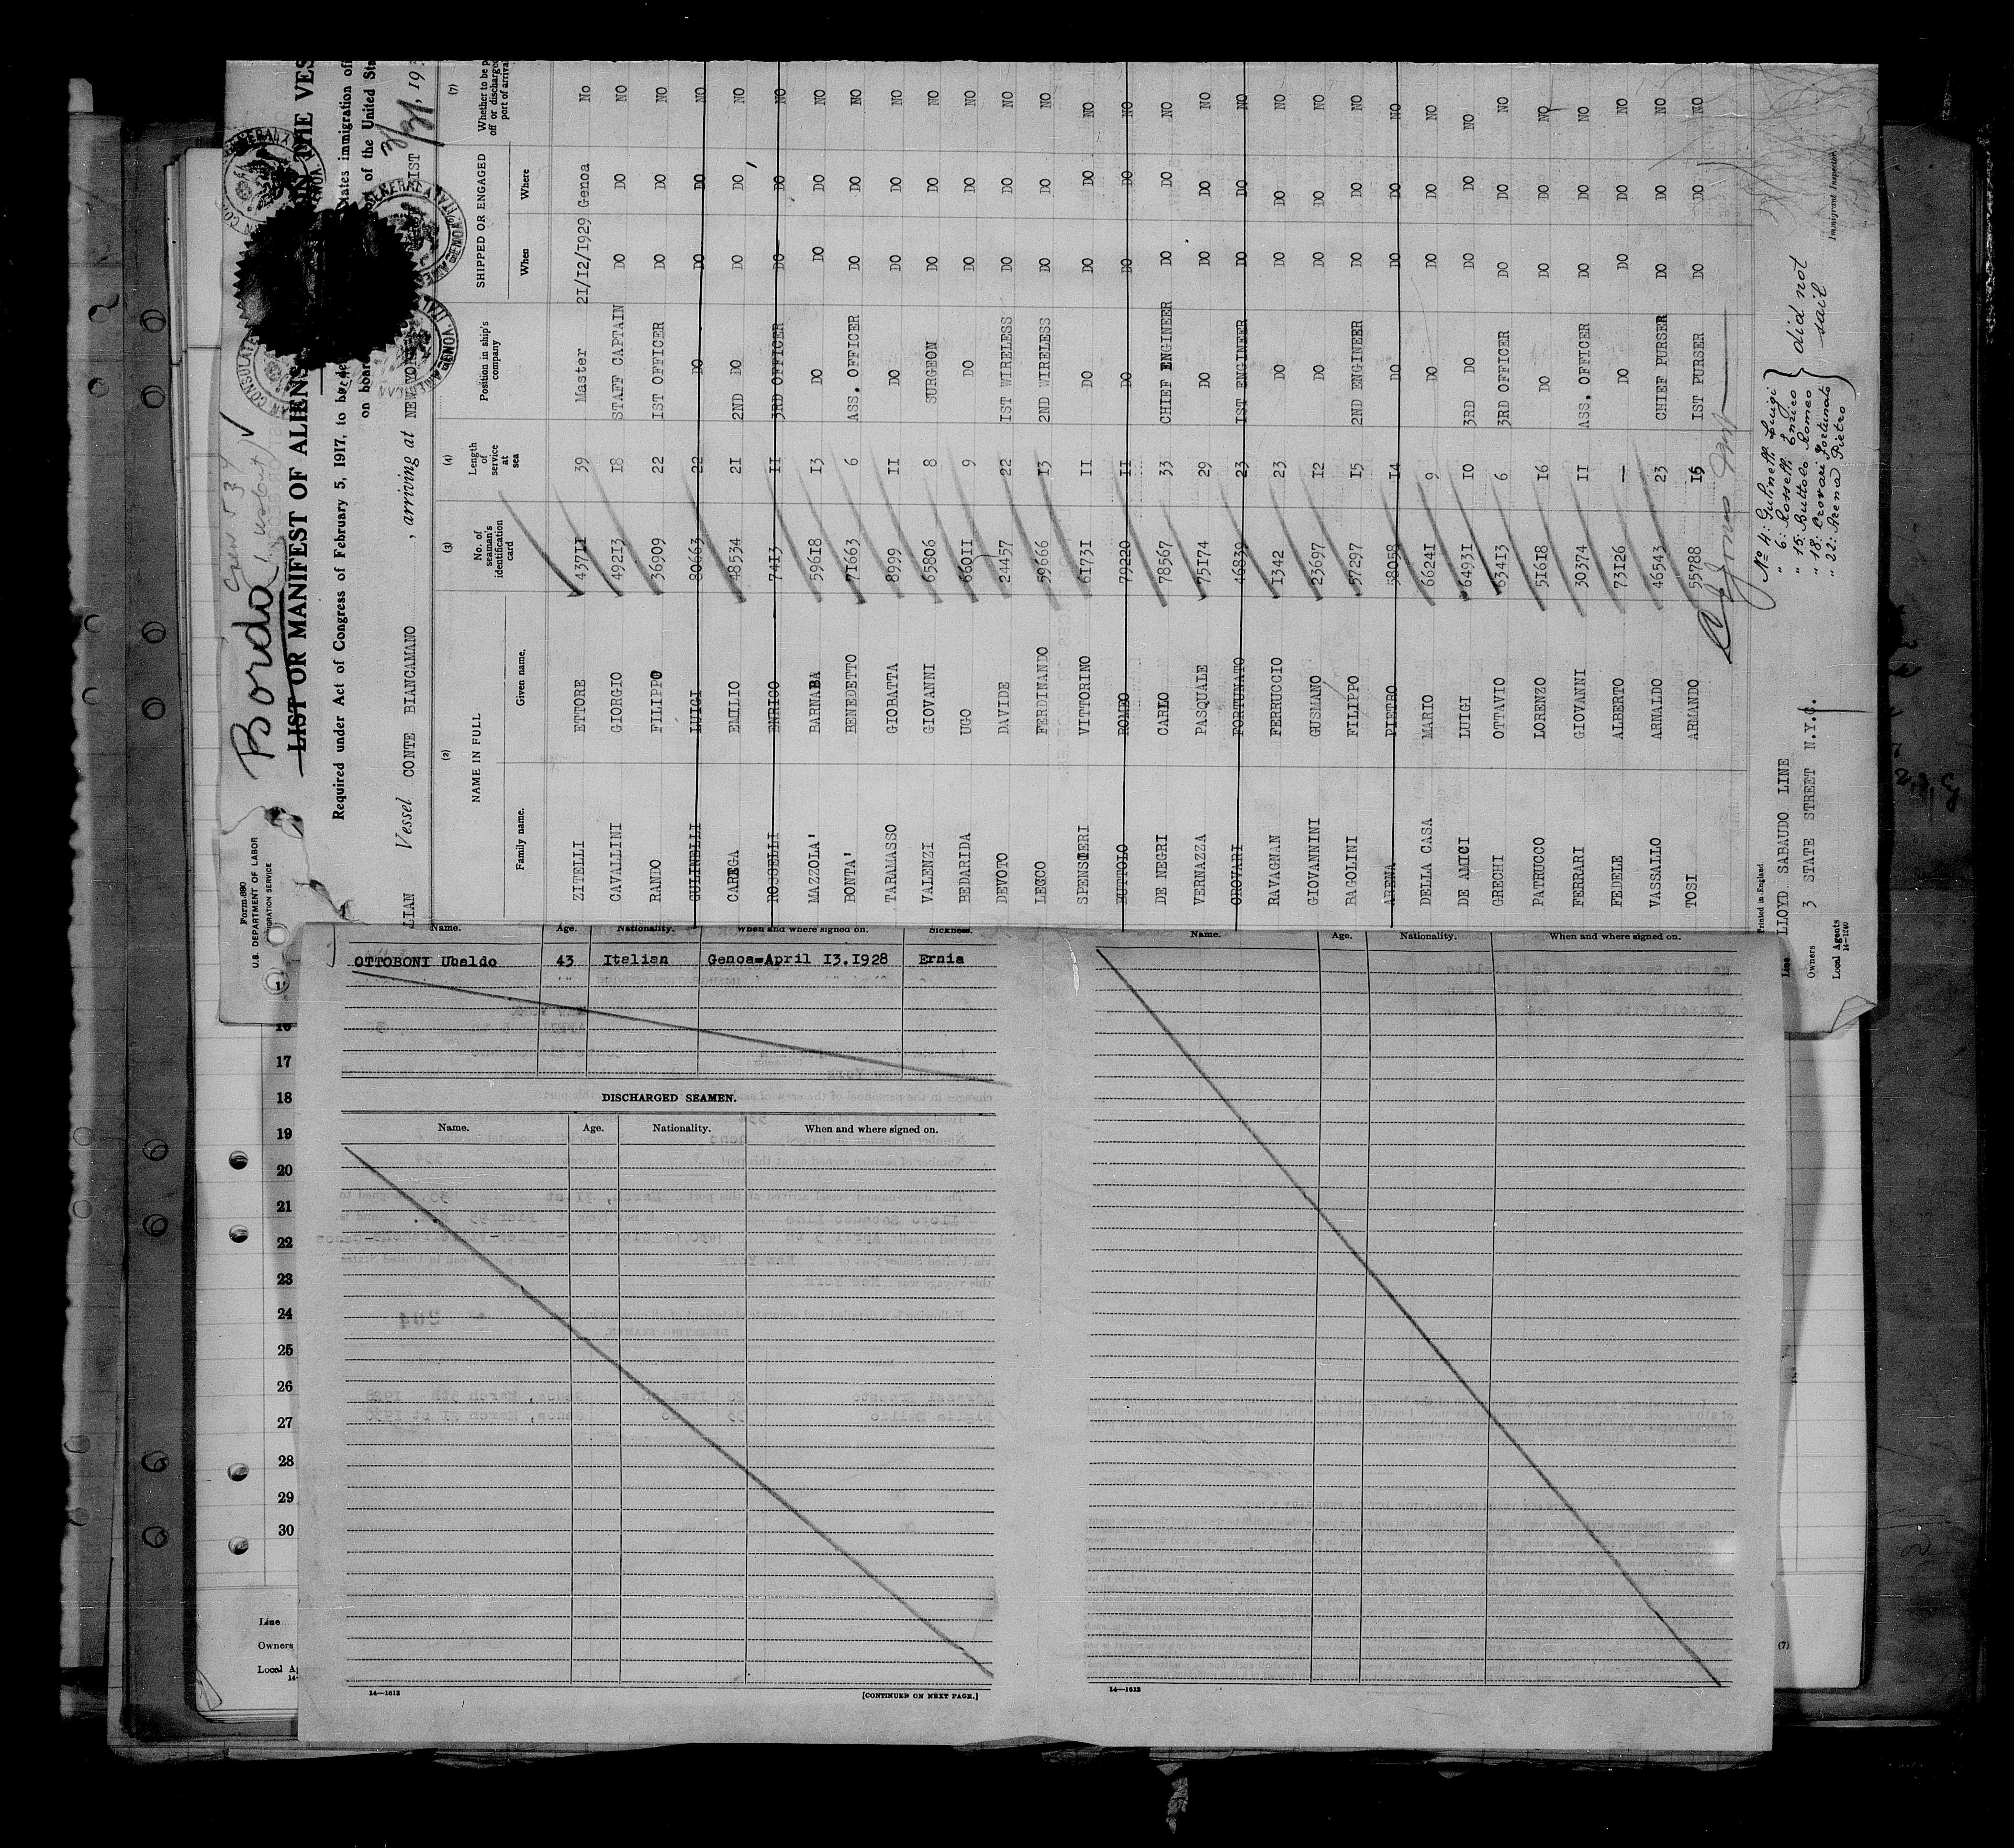 Bordo
Crew 534
Form 680
U.S. DEPARTMENT OF LABOR
LIST OR MANIFEST OF ALIENS
ON THE VES
Required under Act of Congress of February 5, 1917, to be de
tates immigration off
on board
of the United Sta
LIAN Vessel CONTE BIANCAMANO , arriving at NEW YORK
, 193
(2) (3) (4) (7)
NAME IN FULL
No. of seaman's identification card
Length of service at sea
Position in ship's company
SHIPPED OR ENGAGED
Whether to be p
off or discharged
port of arrival
Family name. Given name. When Where
ZITELLI ETTORE 43711 39 Master 21/12/1929 Genoa No
CAVALLINI GIORGIO 49213 18 STAFF CAPTAIN DO DO NO
RANDO FILIPPO 36909 22 IST OFFICER DO DO NO
GULINELLI LUIGI 80663 22 DO DO DO NO
CAREGA EMILIO 48534 21 2ND DO DO DO NO
ROSSELLI ENRICO 7413 11 3RD OFFICER DO DO NO
MAZZOLA' BARNABA 59618 13 DO DO DO NO
BONTA' BENEDETTO 71663 6 ASS. OFFICER DO DO NO
TARAMASSO GIOBATTA 8999 11 DO DO DO NO
VALENZI GIOVANNI 65806 8 SURGEON DO DO NO
BEDARIDA UGO 66011 9 DO DO DO NO
DEVOTO DAVIDE 24457 22 IST WIRELESS DO DO NO
LECCO FERDINANDO 59666 13 2ND WIRELESS DO DO NO
SPENSIERI VITTORINO 61731 11 DO DO DO NO
BUTTOLO ROMEO 79220 11 DO DO DO NO
DE NEGRI CARLO 78567 33 CHIEF ENGINEER DO DO NO
VERNAZZA PASQUALE 75174 29 DO DO DO NO
CROVARI FORTUNATO 46839 23 IST ENGINEER DO DO NO
RAVAGNAN FERRUCCIO 1342 23 DO DO DO NO
GIOVANNINI GUSMANO 23697 12 DO DO DO NO
BAGOLINI FILIPPO 57297 15 2ND ENGINEER DO DO NO
ARENA PIETRO 58058 14 DO DO DO NO
DELLA CASA MARIO 66241 9 DO DO DO NO
DE AMICI LUIGI 64931 10 3RD DO DO DO NO
GRECHI OTTAVIO 63413 6 3RD OFFICER DO DO NO
PATRUCCO LORENZO 51618 16 DO DO DO NO
FERRARI GIOVANNI 30374 11 ASS. OFFICER DO DO NO
FEDELE ALBERTO 73126 — DO DO DO NO
VASSALLO ARNALDO 46543 23 CHIEF PURSER DO DO NO
TOSI ARMANDO 55788 15 IST PURSER DO DO NO
Nº 4: Gulinelli Luigi
" 6: Rosselli Enrico
" 15: Buttolo Romeo
" 18: Crovari Fortunato
" 22: Arena Pietro
did not
sail
Immigrant Inspector
Printed in England.
Line LLOYD SABAUDO LINE
Owners 3 STATE STREET N.Y.C.
Local Agents
14-1240
Name. Age. Nationality. When and where signed on. Sickness.
OTTOBONI Ubaldo 43 Italian Genoa=April 13.1928 Ernia
DISCHARGED SEAMEN.
Name. Age. Nationality. When and where signed on.
14—1613
[CONTINUED ON NEXT PAGE.]
Name. Age. Nationality. When and where signed on.
14—1613
16
17
18
19
20
21
22
23
24
25
26
27
28
29
30
Line
Owners
Local A
(7)